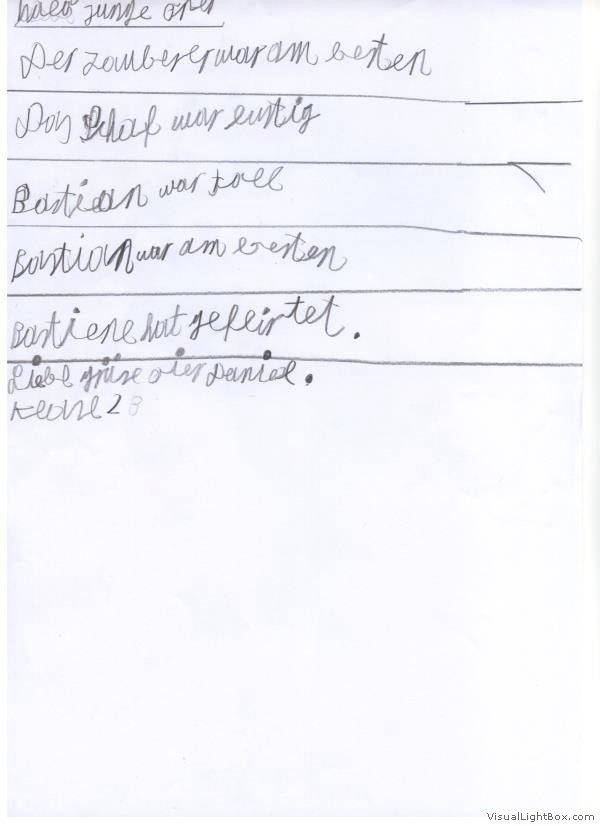 Halo junge oper
Der zauberer war am besten
Das Schaf war lustig
Bastian war toll
Bastian war am besten
Bastiene hat gefeirtet.
Liebe grüse Daniel.
Klasse 2 B
VisualLightBox.com